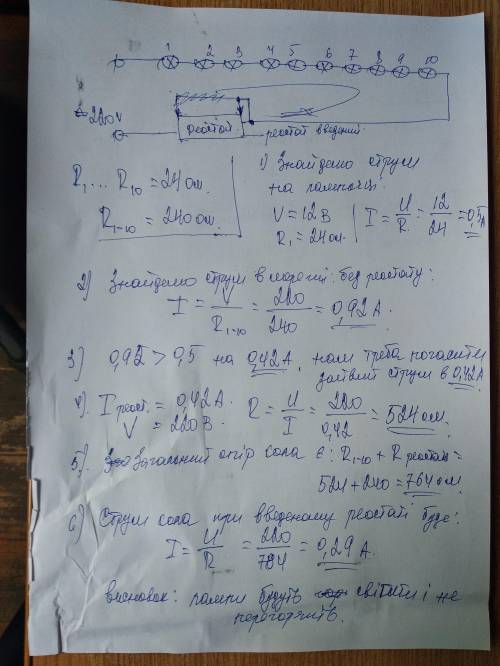 1 2 3 4 5 6 7 8 9 10
~ 220V
реостат
реостат введений
R₁... R₁₀ = 24 ом.
R₁₋₁₀ = 240 ом.
1) Знайдемо струм
на лампочці.
V = 12 В
R₁ = 24 ом.
I = U/R = 12/24 = 0,5 А
2) Знайдемо струм в мережі без реостату:
I = V/R₁₋₁₀ = 220/240 = 0,92 А.
3) 0,92 > 0,5 на 0,42 А, нам треба погасити
зайвий струм в 0,42 А.
4) I реост. = 0,42 А.
V = 220 В.
R = U/I = 220/0,42 = 524 ом.
5) Загальний опір кола є: R₁₋₁₀ + R реостат =
524 + 240 = 764 ом
6) Струм кола при введеному реостаті буде:
I = U/R = 220/764 = 0,29 А.
висновок: лампи будуть світити і не
перегорять.